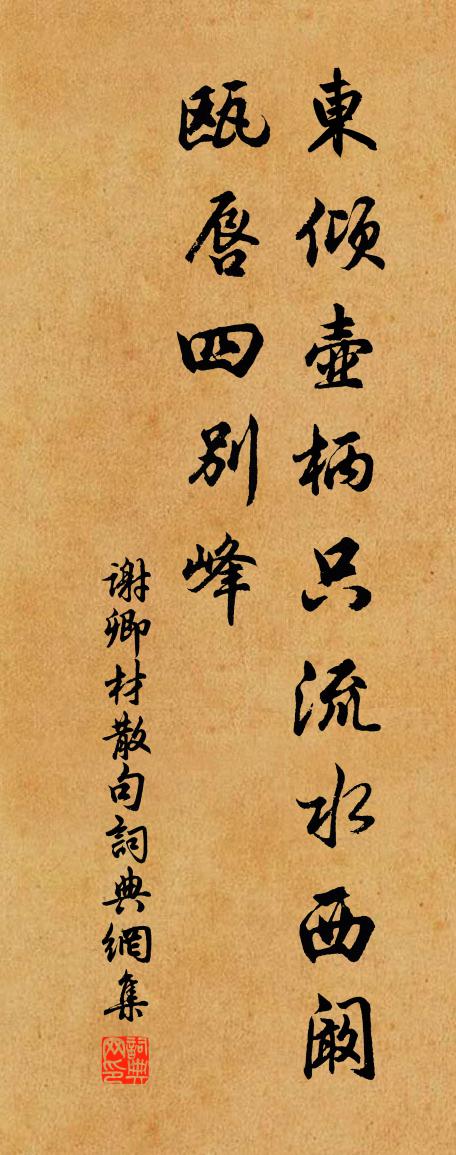 東傾壺柄只流水西闞
甌唇四別峰
謝卿材散句詞典網集
詞典網印